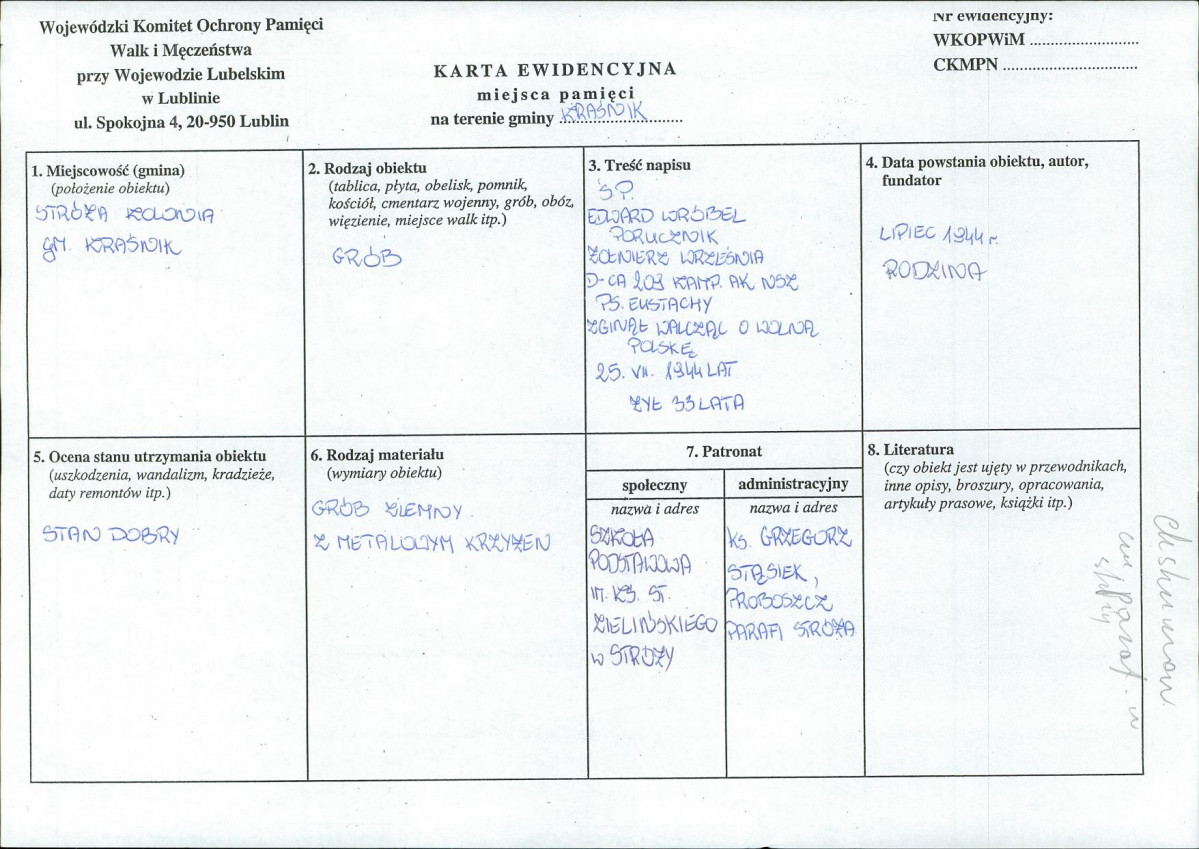 Wojewódzki Komitet Ochrony Pamięci
Walk i Męczeństwa
przy Wojewodzie Lubelskim
w Lublinie
ul. Spokojna 4, 20-950 Lublin
KARTA EWIDENCYJNA
miejsca pamięci
na terenie gminy KRAŚNIK
Nr ewidencyjny:
WKOPWiM
CKMPN
1. Miejscowość (gmina)
(położenie obiektu)
STRÓŻA KOLONIA
gm. KRAŚNIK
2. Rodzaj obiektu
(tablica, płyta, obelisk, pomnik,
kościół, cmentarz wojenny, grób, obóz,
więzienie, miejsce walk itp.)
GRÓB
3. Treść napisu
Ś.P.
EDWARD WRÓBEL
PORUCZNIK
ŻOŁNIERZ WRZEŚNIA
D-CA 203 KAMP. AK NSZ
PS. EUSTACHY
ZGINĄŁ WALCZĄC O WOLNĄ
POLSKĘ
25. VII. 1944 LAT
ŻYŁ 33 LATA
4. Data powstania obiektu, autor,
fundator
LIPIEC 1944 r.
RODZINA
5. Ocena stanu utrzymania obiektu
(uszkodzenia, wandalizm, kradzieże,
daty remontów itp.)
STAN DOBRY
6. Rodzaj materiału
(wymiary obiektu)
GRÓB ZIEMNY
Z METALOWYM KRZYŻEM
7. Patronat
społeczny
nazwa i adres
SZKOŁA
PODSTAWOWA
IM. KS. ST.
ZIELIŃSKIEGO
W STRÓŻY
administracyjny
nazwa i adres
KS. GRZEGORZ
STĄSIEK,
PROBOSZCZ
PARAFI STRÓŻA
8. Literatura
(czy obiekt jest ujęty w przewodnikach,
inne opisy, broszury, opracowania,
artykuły prasowe, książki itp.)